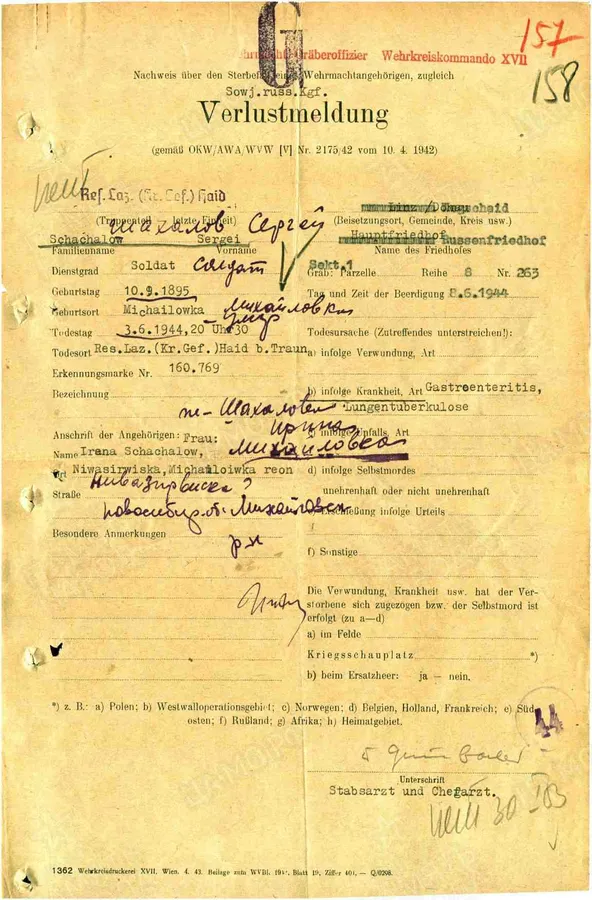 157
158
Gräberoffizier Wehrkreiskommando XVII
G
Nachweis über den Sterbefall eines Wehrmachtangehörigen, zugleich
Sowj.russ.Kgf.
Verlustmeldung
(gemäß OKW/AWA/WVW [V] Nr. 2175/42 vom 10. 4. 1942)
Res. Laz. (Kr. Gef.) Haid
(Truppenteil letzte Einheit)
Шахалов Сергей
Schachalow Sergei
Familienname Vorname
Dienstgrad Soldat солдат
Geburtstag 10.9.1895
Geburtsort Michailowka Михайловка
умер
Todestag 3.6.1944, 20 Uhr 30
Todesort Res.Laz.(Kr.Gef.)Haid b.Traun
Erkennungsmarke Nr. 160.769
Bezeichnung
ж- Шахалова
Ирина
Anschrift der Angehörigen: Frau: Михайловка
Name Irana Schachalow,
Ort Niwasirwiska, Michailoiwka reon
Нивазирвиска?
Straße
новосибир. об. Михайловск
Besondere Anmerkungen
р-н
Linz/Donau
(Beisetzungsort, Gemeinde, Kreis usw.)
Hauptfriedhof
Russenfriedhof
Name des Friedhofes
Sekt.1
Grab: Parzelle Reihe 8 Nr. 263
Tag und Zeit der Beerdigung 8.6.1944
Todesursache (Zutreffendes unterstreichen!):
a) infolge Verwundung, Art
b) infolge Krankheit, Art Gastroenteritis,
Lungentuberkulose
c) infolge Unfalls, Art
d) infolge Selbstmordes
unehrenhaft oder nicht unehrenhaft
e) Erschießung infolge Urteils
f) Sonstige
Die Verwundung, Krankheit usw. hat der Ver-
storbene sich zugezogen bzw. der Selbstmord ist
erfolgt (zu a—d)
a) im Felde
Kriegsschauplatz *)
b) beim Ersatzheer: ja — nein.
*) z. B.: a) Polen; b) Westwalloperationsgebiet; c) Norwegen; d) Belgien, Holland, Frankreich; e) Süd
osten; f) Rußland; g) Afrika; h) Heimatgebiet.
44
Unterschrift
Stabsarzt und Chefarzt.
30
1362 Wehrkreisdruckerei XVII, Wien. 4. 43. Beilage zum WVBl. Blatt 19, Ziffer 401. — Q/0208.